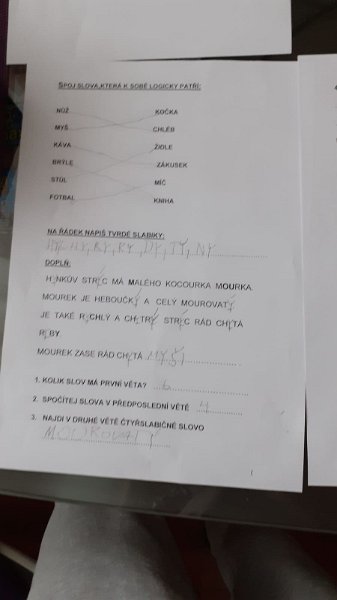 SPOJ SLOVA,KTERÁ K SOBĚ LOGICKY PATŘÍ:
NŮŽ KOČKA
MYŠ CHLÉB
KÁVA ŽIDLE
BRÝLE ZÁKUSEK
STŮL MÍČ
FOTBAL KNIHA
NA ŘÁDEK NAPIŠ TVRDÉ SLABIKY:
HY, CHY, KY, RY, DY, TY, NY
DOPLŇ:
HYNKŮV STRÝC MÁ MALÉHO KOCOURKA MOURKA.
MOUREK JE HEBOUČKÝ A CELÝ MOUROVATÝ
JE TAKÉ RYCHLÝ A CHYTRÝ STRÝC RÁD CHYTÁ
RYBY.
MOUREK ZASE RÁD CHYTÁ MYŠI
1. KOLIK SLOV MÁ PRVNÍ VĚTA? 6
2. SPOČÍTEJ SLOVA V PŘEDPOSLEDNÍ VĚTĚ 4
3. NAJDI V DRUHÉ VĚTĚ ČTYŘSLABIČNÉ SLOVO
MOUROVATÝ